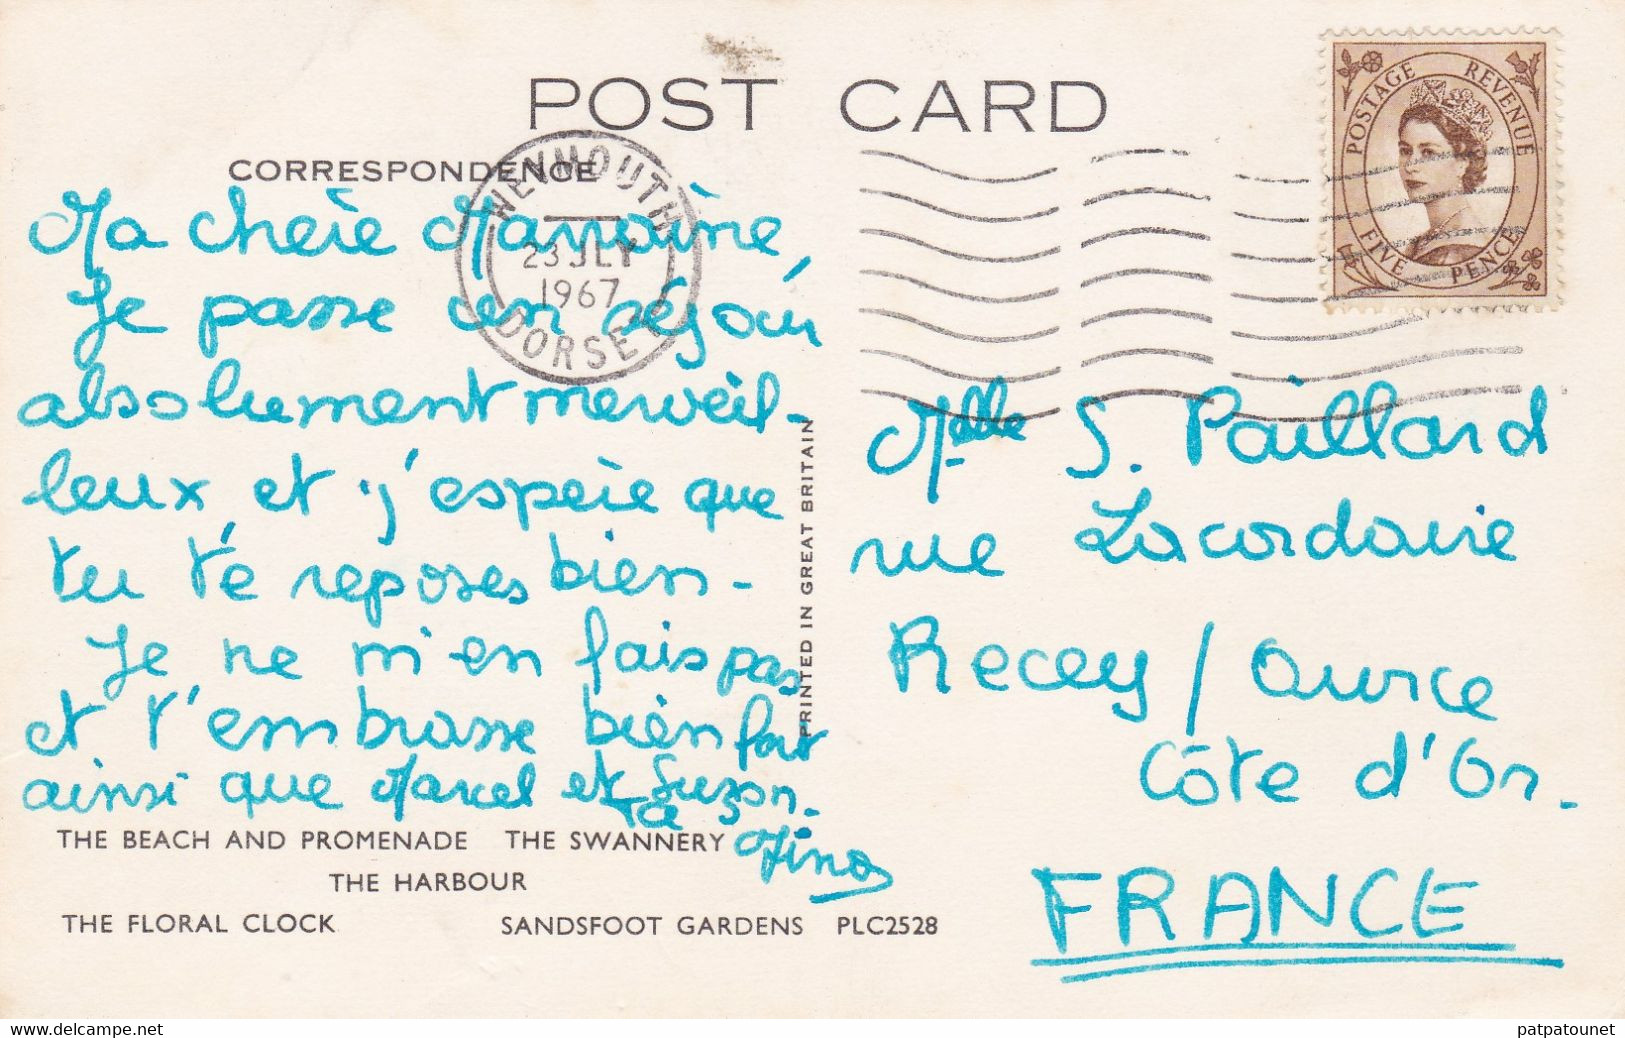 POST CARD
CORRESPONDENCE
WEYMOUTH
23 JLY
1967
DORSET
POSTAGE REVENUE
FIVE PENCE
Ma chère Marraine,
Je passe un séjour
absolument merveil-
leux et j'espère que
tu te reposes bien -
Je ne m'en fais pas
et t'embrasse bien fort
ainsi que Marcel et Suzon.
Ta
PRINTED IN GREAT BRITAIN
Melle S. Paillard
rue Lacordaire
Recey / Ource
Côte d'Or.
FRANCE
THE BEACH AND PROMENADE THE SWANNERY
THE HARBOUR
THE FLORAL CLOCK SANDSFOOT GARDENS PLC2528
delcampe.net
patpatounet